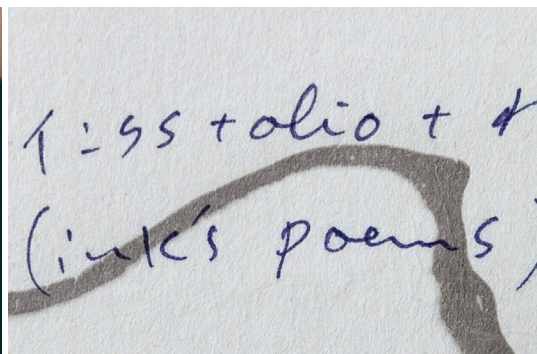 1=ss+olio+
(ink's poems)